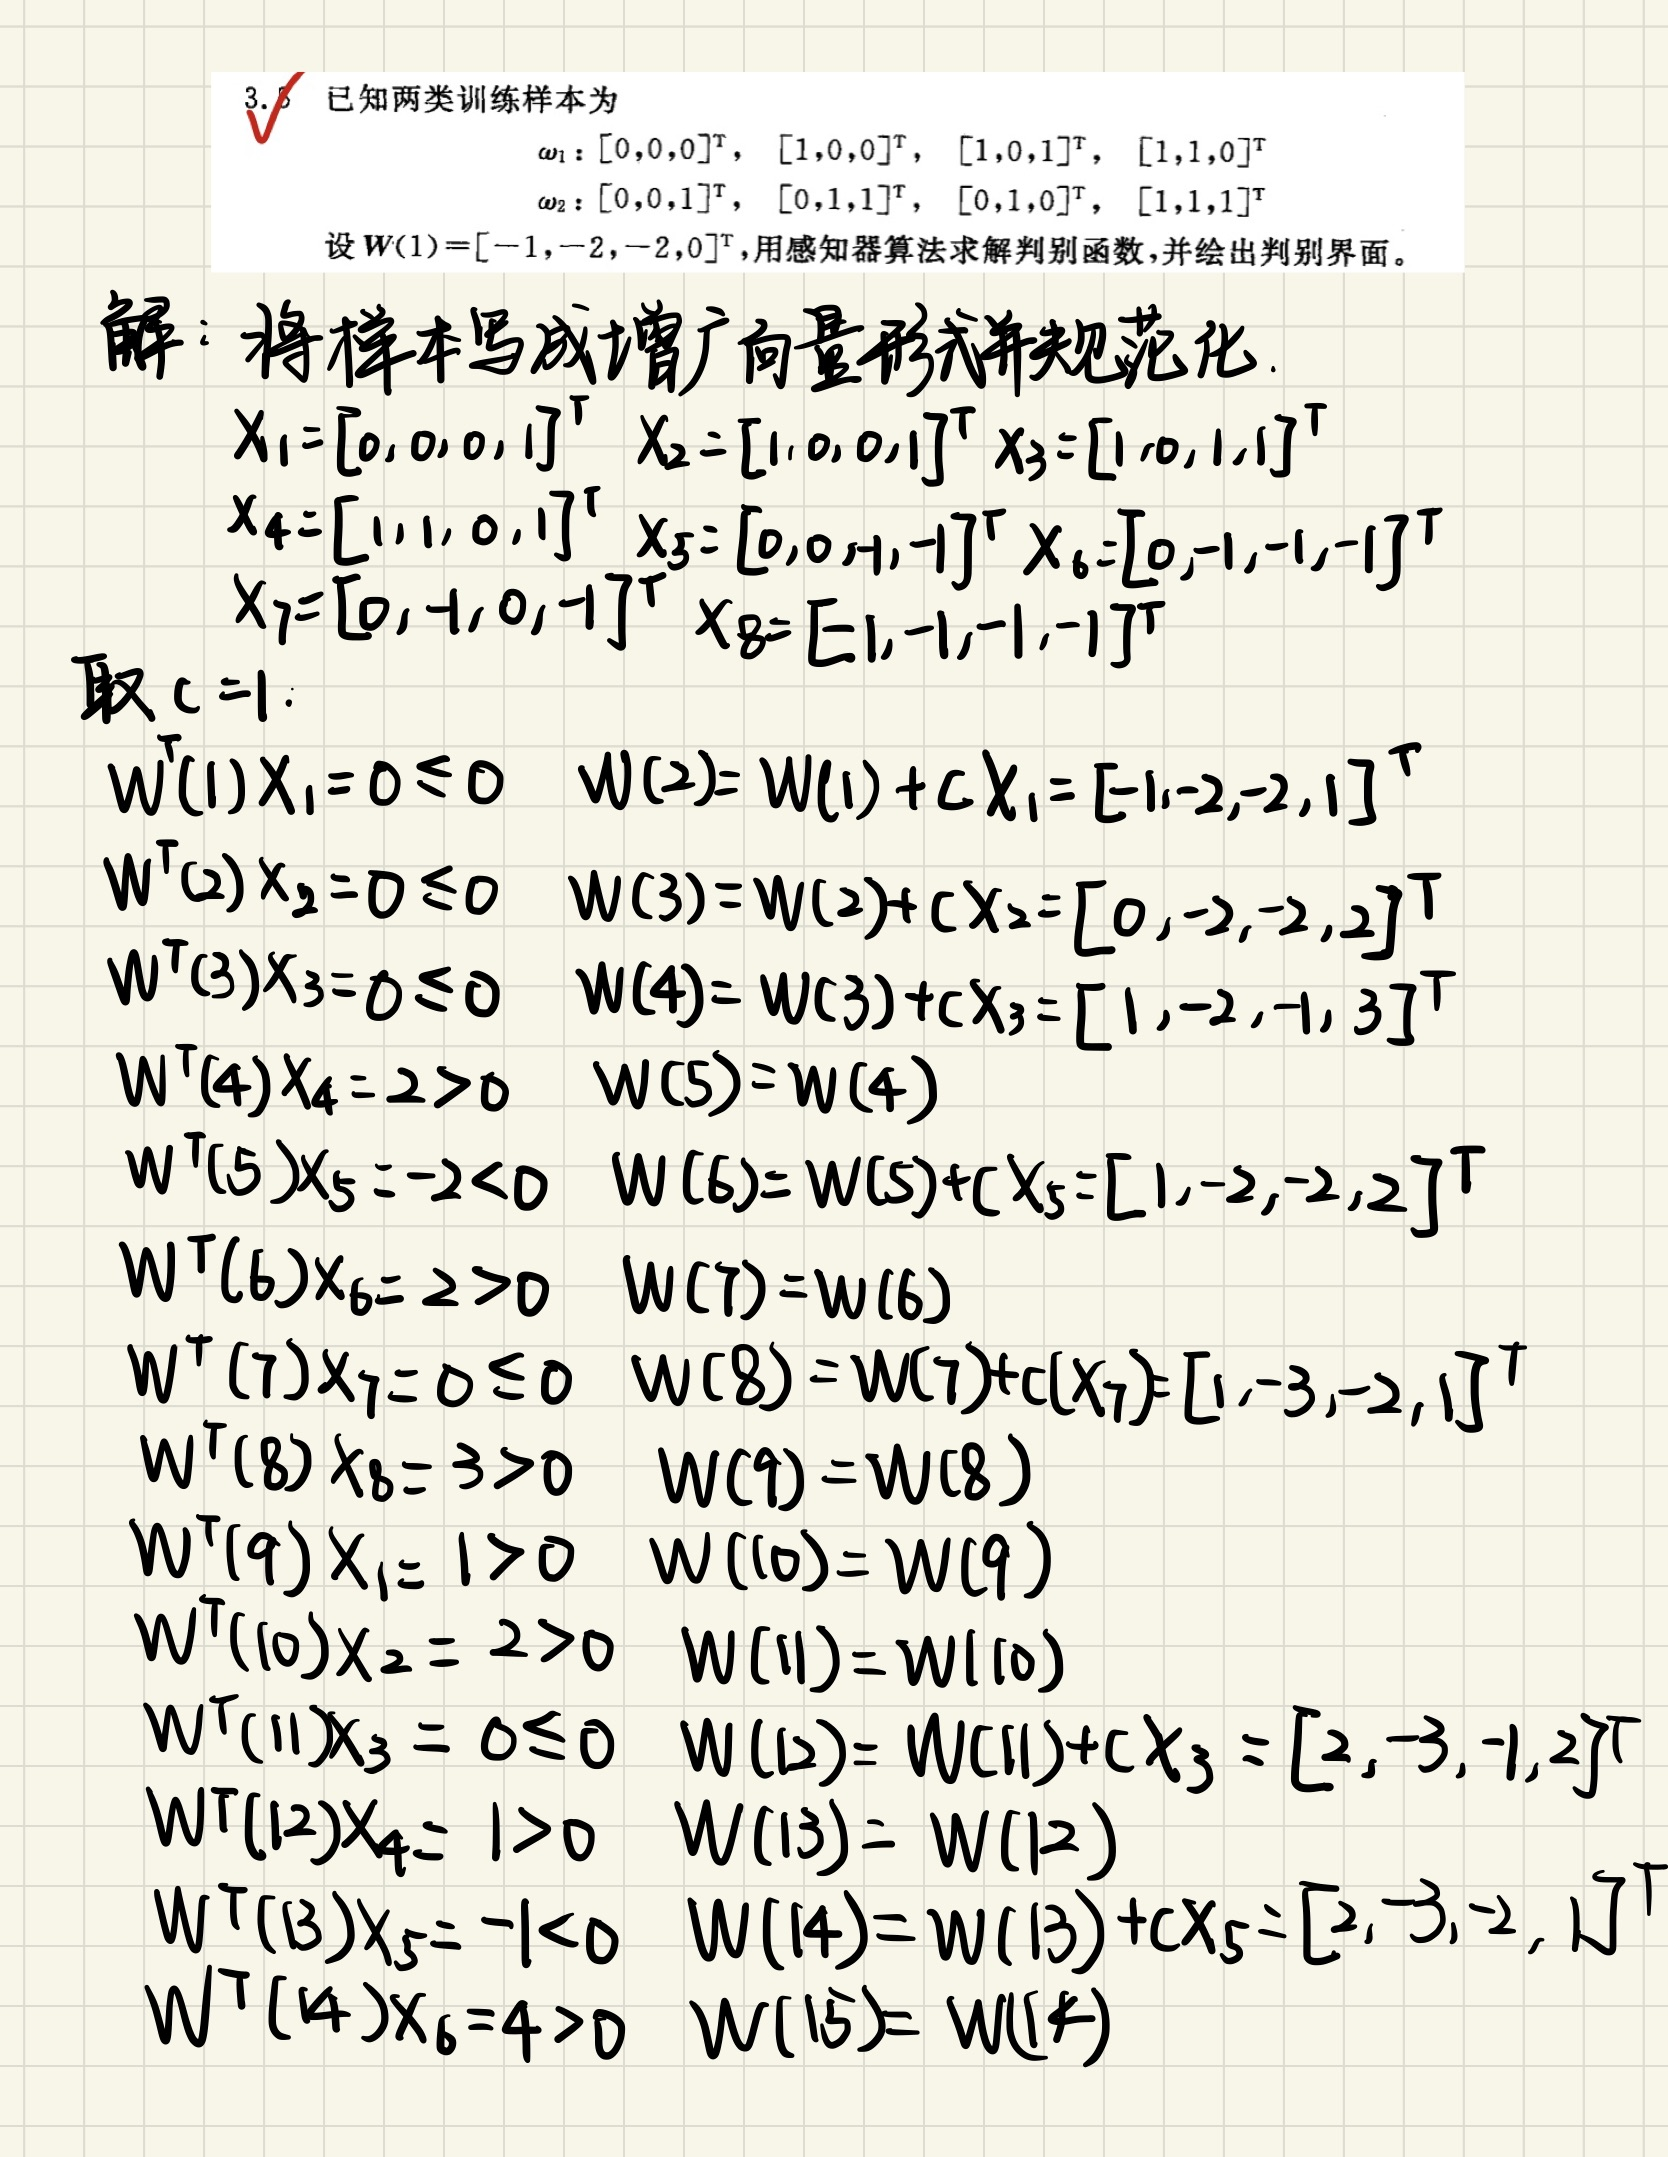 3.8 已知两类训练样本为
ω₁: [0,0,0]ᵀ, [1,0,0]ᵀ, [1,0,1]ᵀ, [1,1,0]ᵀ
ω₂: [0,0,1]ᵀ, [0,1,1]ᵀ, [0,1,0]ᵀ, [1,1,1]ᵀ
设 W(1)=[-1,-2,-2,0]ᵀ,用感知器算法求解判别函数,并绘出判别界面。
解: 将样本写成增广向量形式并规范化.
X₁=[0,0,0,1]ᵀ X₂=[1,0,0,1]ᵀ X₃=[1,0,1,1]ᵀ
X₄=[1,1,0,1]ᵀ X₅=[0,0,-1,-1]ᵀ X₆=[0,-1,-1,-1]ᵀ
X₇=[0,-1,0,-1]ᵀ X₈=[-1,-1,-1,-1]ᵀ
取 c=1:
Wᵀ(1)X₁=0≤0 W(2)=W(1)+cX₁=[-1,-2,-2,1]ᵀ
Wᵀ(2)X₂=0≤0 W(3)=W(2)+cX₂=[0,-2,-2,2]ᵀ
Wᵀ(3)X₃=0≤0 W(4)=W(3)+cX₃=[1,-2,-1,3]ᵀ
Wᵀ(4)X₄=2>0 W(5)=W(4)
Wᵀ(5)X₅=-2<0 W(6)=W(5)+cX₅=[1,-2,-2,2]ᵀ
Wᵀ(6)X₆=2>0 W(7)=W(6)
Wᵀ(7)X₇=0≤0 W(8)=W(7)+c(X₇)=[1,-3,-2,1]ᵀ
Wᵀ(8)X₈=3>0 W(9)=W(8)
Wᵀ(9)X₁=1>0 W(10)=W(9)
Wᵀ(10)X₂=2>0 W(11)=W(10)
Wᵀ(11)X₃=0≤0 W(12)=W(11)+cX₃=[2,-3,-1,2]ᵀ
Wᵀ(12)X₄=1>0 W(13)=W(12)
Wᵀ(13)X₅=-1<0 W(14)=W(13)+cX₅=[2,-3,-2,1]ᵀ
Wᵀ(14)X₆=4>0 W(15)=W(14)